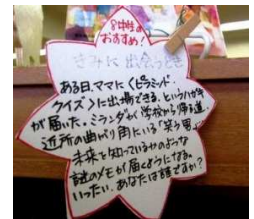 8中性の
おすすめ!
きみに出会うとき
ある日、ママに〈ピラミッド・
クイズ〉に出場できる、というハガキ
が届いた。ミランダが学校から帰る道、
近所の曲がり角にいる「笑う男」。
未来を知っているかのような
謎のメモが届くようになる。
いったい、あなたは誰ですか?